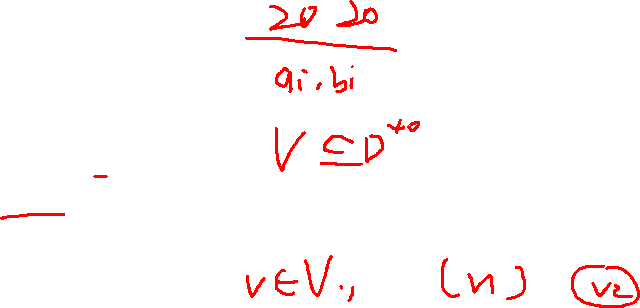 20 20
ai, bi
V ⊆ D^{40}
v ∈ V., (n) v2